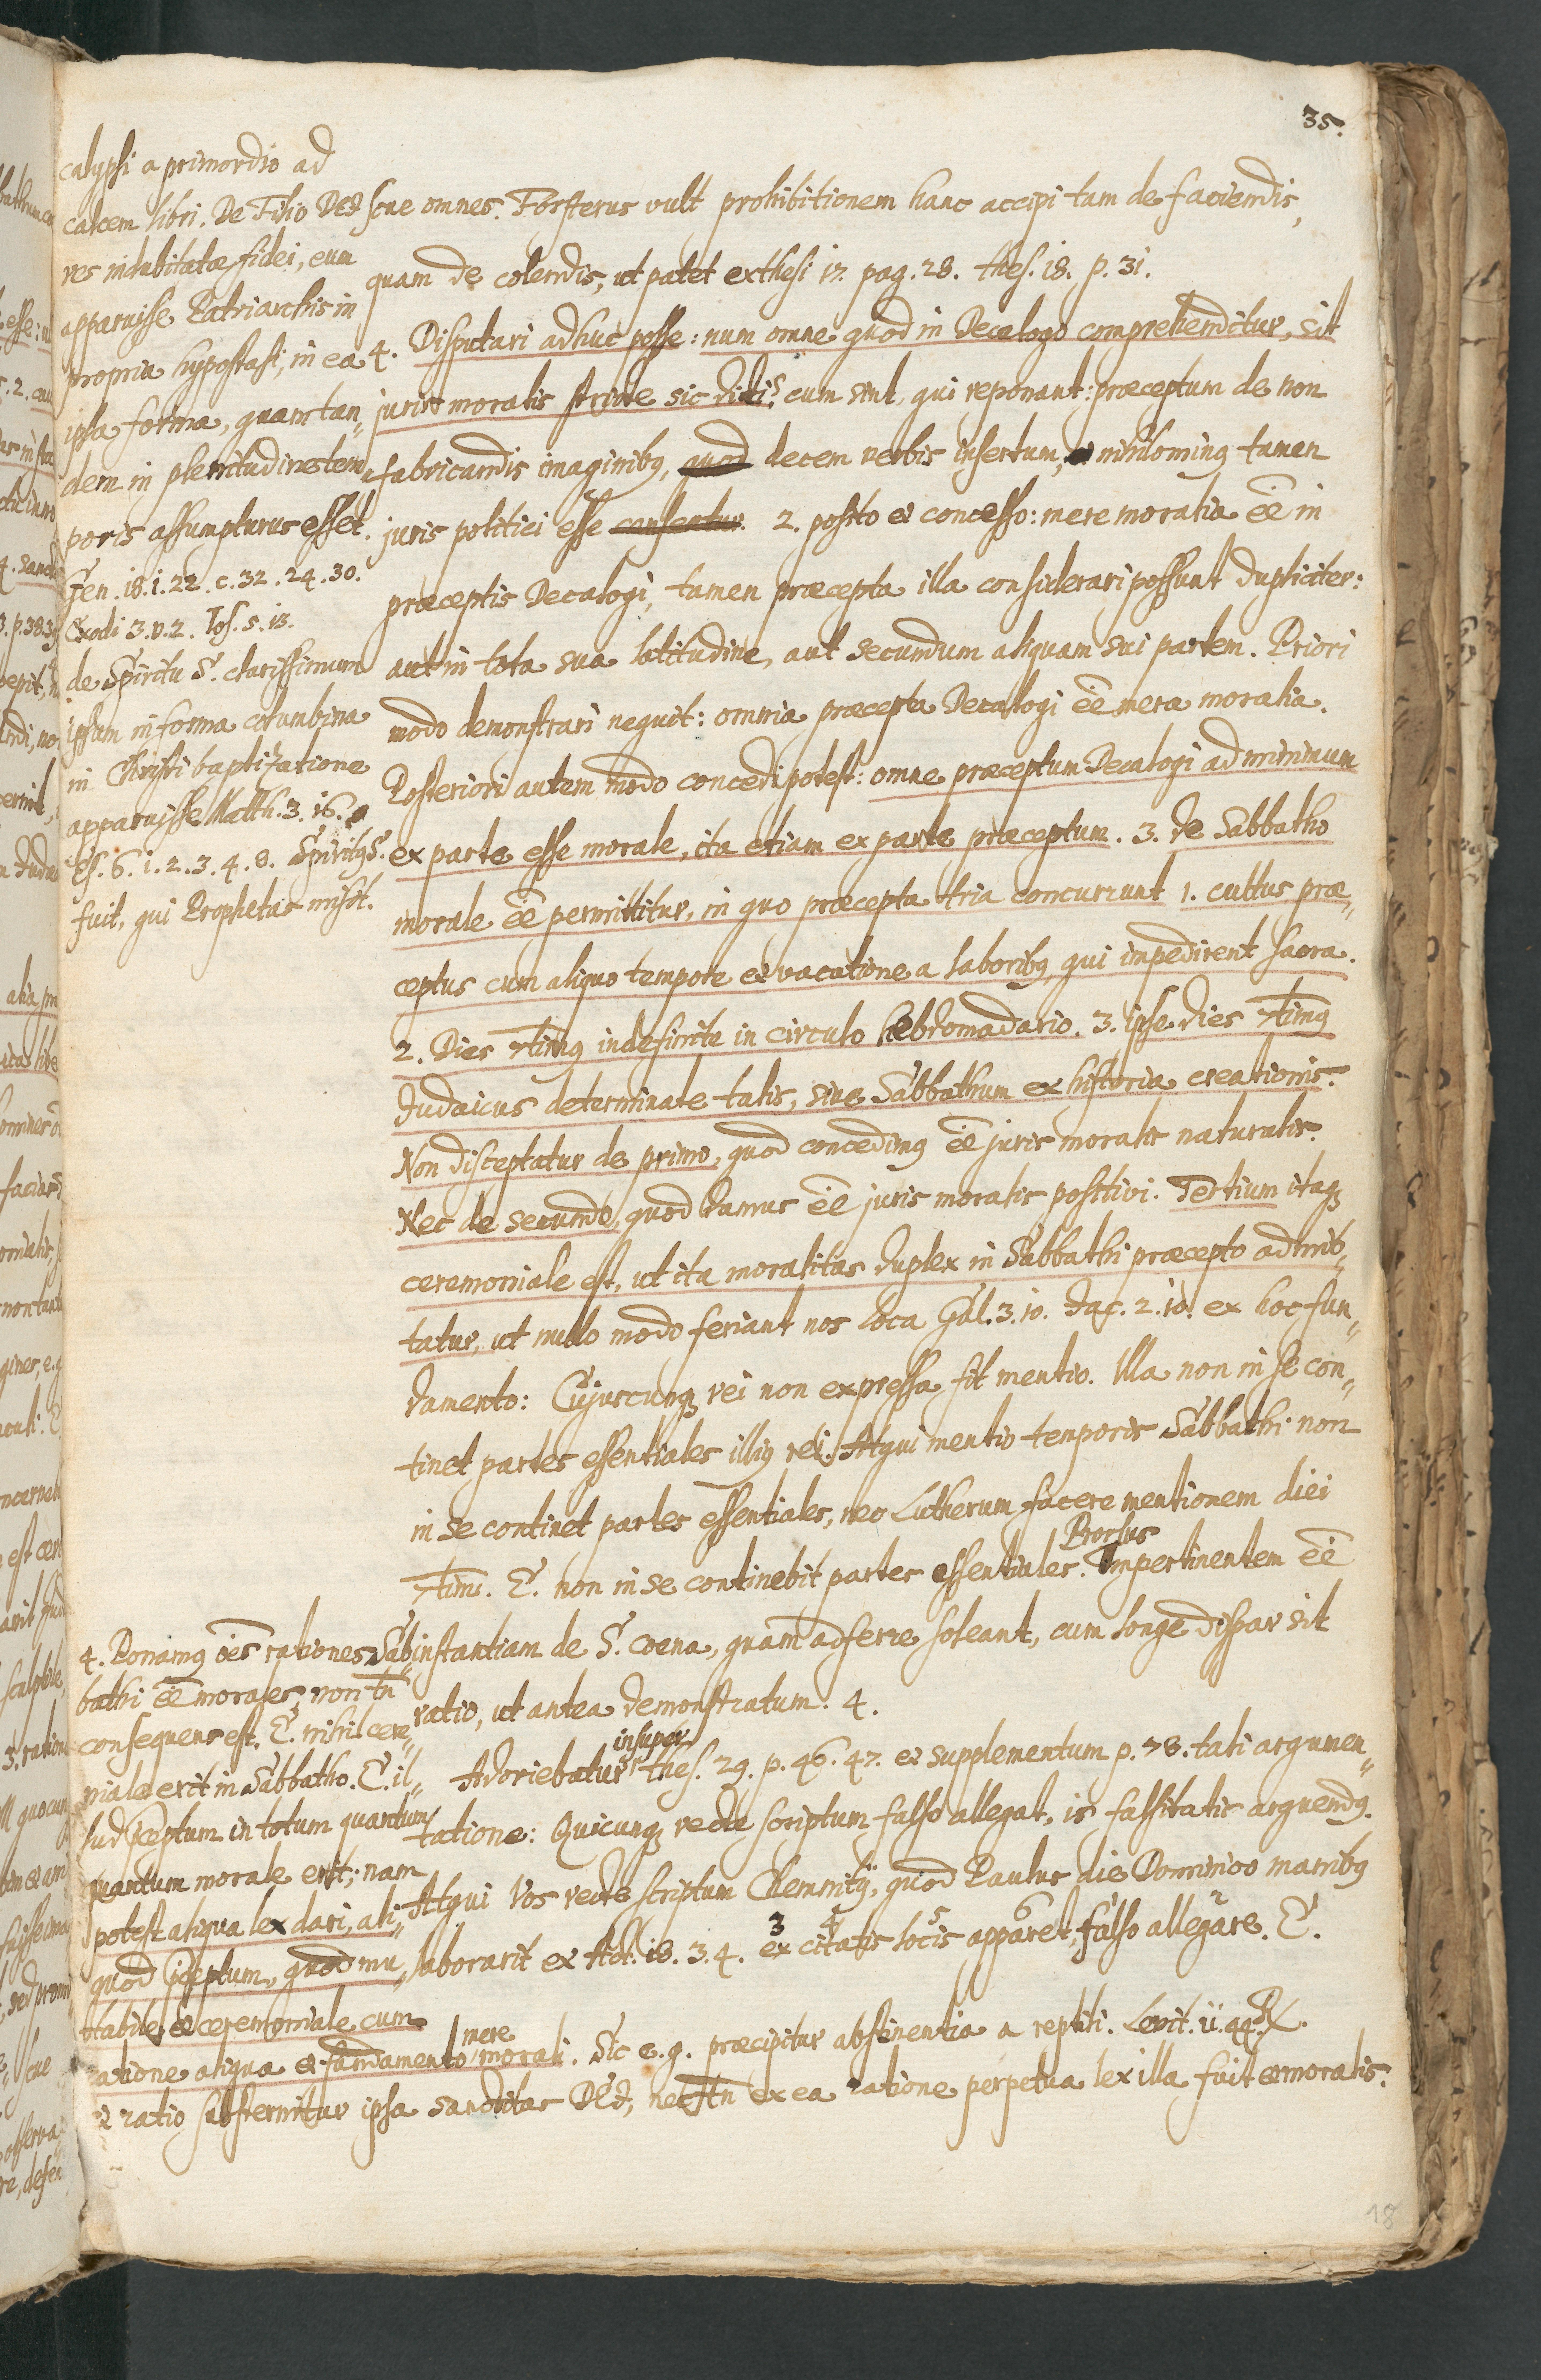 35.
calypsi a primordio ad
calcem libri. De Filio DEI
res indubitatae fidei, eum
apparuisse Patriarchis in
propria hypostasi, in ea
ipsa forma, quam tan„
dem in plenitudine tem„
poris assumpturus esset.
Gen. 18. 1. 22. c. 32. 24. 30.
Exodi 3. v. 2. Jos. 5. 13.
de Spiritu S. clarissimum
ipsum in forma columbina
in Christi baptizatione
apparuisse Matth. 3. 16.
Es. 6. 1. 2. 3. 4. 8. Spiritus S.
fuit, qui Prophetas misit.
sive omnes. Forsterus vult prohibitionem hanc accipi tam de faciendis,
quam de colendis, ut patet ex thesi 17. pag. 28. thes. 18. p. 31.
4. Disputari adhuc posse: num omne quod in Decalogo comprehenditur, sit
juris moralis stricte sic dicti? cum sint, qui reponant: praeceptum de non
fabricandis imaginibus, quod decem verbis insertum, nihilominus tamen
juris politici esse censetur. 2. posito et concesso: mere moralia ee in
praeceptis Decalogi, tamen praecepta illa considerari possunt dupliciter:
aut in tota sua latitudine, aut secundum aliquam sui partem. Priori
modo demonstrari nequit: omnia praecepta Decalogi ee mera moralia.
Posteriori autem modo concedi potest: omne praeceptum Decalogi ad minimum
ex parte esse morale, ita etiam ex parte praeceptum. 3. de Sabbatho
morale ee permittitur, in quo praecepta tria concurrunt 1. cultus prae„
ceptus cum aliquo tempore et vacatione a laboribus, qui impedirent sacra.
2. Dies 7timus indefinite in circulo hebdomadario. 3. ipse dies 7timus
Judaicus determinate talis, sive Sabbathum ex historia creationis.
Non disceptatur de primo, quod concedimus ee juris moralis naturalis.
Nec de secundo, quod damus ee juris moralis positivi. Tertium itaque
ceremoniale est, ut ita moralitas duplex in Sabbathi praecepto admit„
tatur, ut nullo modo feriant nos loca Gal. 3. 10. Jac. 2. 10. ex hoc fun„
damento: Cujuscunque rei non expressa fit mentio. Illa non in se con„
tinet partes essentiales illius rei. Atqui mentio temporis Sabbathi non
in se continet partes essentiales, nec Lutherum facere mentionem diei
7timi. E. non in se continebit partes essentiales. Prorsus Impertinentem ee
instantiam de S. coena, quam adferre soleant, cum longe dispar sit
ratio, ut antea demonstratum. 4.
Adoriebatur insuper thes. 29. p. 46. 47. et supplementum p. 78. tali argumen„
tatione: Quicunque recte scriptum falso allegat, is falsitatis arguendus.
Atqui Vos recte scriptum Chemnitij, quod Paulus die Dominico manibus
laborarit ex Act. 18. 3. 4. 3 ex 4 citatis 5 locis 6 apparet, falso 2 allegare. E.
4. Ponamus oes rationes Sab„
bathi ee morales, non tn
consequens est. E. nihil cere„
niale erit in Sabbatho. E. il„
lud pceptum in totum quantum
quantum morale erit; nam
potest aliqua lex dari, ali„
quod pceptum, quod mu„
tabile et ceremoniale cum
ratione aliqua et fundamento mere morali. Sic e. g. praecipitur abstinentia a reptili. Levit. 11. 44.
et ratio substernitur ipsa sanctitas DEI, nec tn ex ea ratione perpetua lex illa fuit et moralis.
18